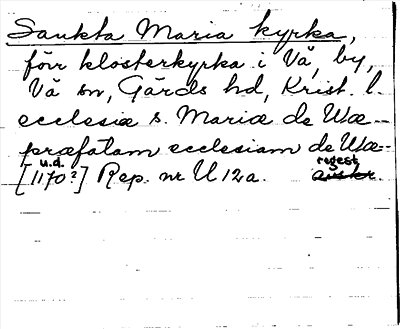 Sankta Maria kyrka,
förr klosterkyrka i Vä, by,
Vä sn, Gärds hd, Krist. l.
ecclesiæ s. Mariæ de Wæ--
præfatam ecclesiam de Wæ--
u.d. regest
[1170?] Rep. nr U 12a. avskr.